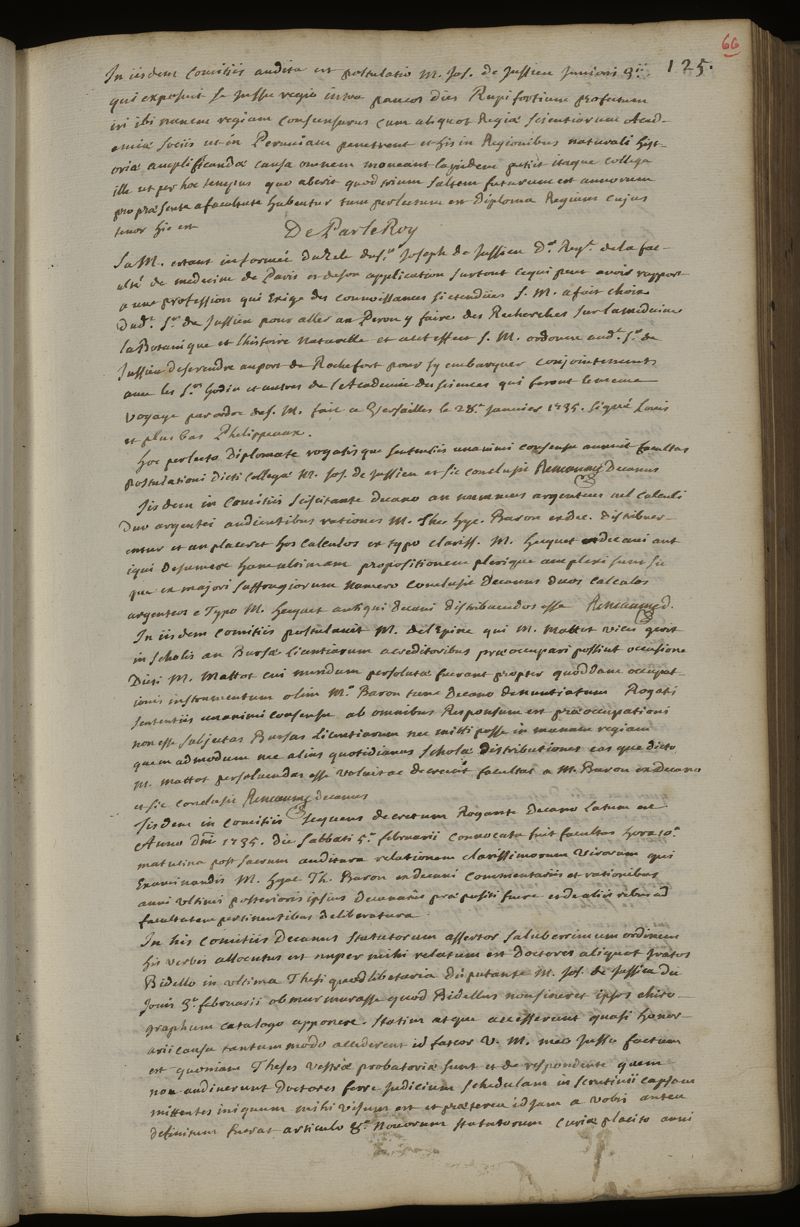 66
125.
In iisdem Comitiis audita est postulatio M. Jos. de Jussieu Junioris
qui exposuit se Jussu regio intra paucos dies Rupifortium profecturum
iri ibi navem regiam consensurus cum aliquot Regiæ Scientiarum Acad-
emiæ Sociis ut in Peruviam penetrent et his in Regionibus naturali hist-
oriæ amplificandæ causa omnem moveant lapidem petiit itaque collega
ille ut per hoc tempus quo aberit quod trium saltem futurum est annorum
pro præsente a facultate habeatur tum perlectum est diploma Regium cujus
tenor hic est
De Par le Roy
Sa M. estant informée du Zele du S.r Joseph de Jussieu D.r Reg.t de la fac-
ulté de medecine de Paris et de son application surtout ce qui peut avoir rapport
a une profession qui Exige des connoissances si etendües S. M. a fait choix
Dud.t S.r de Jussieu pour aller au Perou y faire des Recherches sur la médecine
la Botanique et l'histoire Naturelle et a cet effect S. M. ordonne aud.t S.r de
Jussieu de se rendre au port de Rochefort pour s'y embarquer conjointement
avec les S.rs Godin et autres de l'Academie des sciences qui feront le meme
voyage par ordre de S. M. fait a Versailles le 28.e Janvier 1735. Signé Louis
et plus bas Phelippeaux.
Hoc perlecto Diplomate rogatisque sententiis unanimi consensu annuit facultas
postulationi dicti Collegæ M. Jos. de Jussieu et sic conclusit Reneaume Decanus
Iisdem in Comitiis sciscitante decano an nummus argenteus vel calculi
Duo argentei audientibus rationes M. Theo Hya. Baron exdec. distribuer-
entur et an placeret hos calculos ex typo clariss. M. Hecquet exdecani ant
iqui desumere hanc ultimam propositionem plerique amplexi sunt sic
que ex majori suffragiorum numero conclusit decanus duos calculos
argenteos e Typo M. Hecquet antiqui decani distribuendos esse Reneaume d.
In iisdem Comitiis postulavit M. de l'Epine qui M. Mattot vices gerit
in scholis an Bursæ licentiarum a creditoribus præoccupari possint occasione
Dicti M. Mattot cui nundum persolutæ fuerant propter quoddam occupat-
ionis instrumentum olim M.o Baron tunc Decano denuntiatum Rogatis
sententiis unanimi consensu ab omnibus Responsum est præoccupationi
non esse subjectas Bursas licentiarum nec mitti posse in manum regiam
quemadmodum nec alias quotidianas scholæ distributiones easque dicto
M. Mattot persolvendas esse voluit ac decrevit facultas a M. Baron exdecano
et sic conclusit Reneaume decanus
Iisdem in Comitiis sequens decretum Rogante decano latum est
Anno Dni 1735. die Sabbati 5.a februarii Convocata fuit facultas hora 10.a
matutina post sacrum auditura relationem clarissimorum virorum qui
Examinandis M. Hyac. Th. Baron exdecani Commentariis et rationibus
anni ultimi posterioris ipsius Decanatus præpositi fuere et de aliis rebus ad
facultatem pertinentibus deliberatura
In his Comitiis Decanus statutorum assertor saluberrimum ordinem
his verbis allocutus est nuper mihi relatum est doctores aliquot iratos
Bidello in ultima Thesi quodlibetaria disputante M. Jos. de Jussieu die
Jovis 3.a februarii obmurmurasse quod Bidellus non sineret ipsos chiro-
graphum catalogo apponere. statim atque accesserant quasi honor-
arii causa tantummodo accederent id fateor V. M. meo Jussu factum
est quoniam Theses vestræ probatoriæ sunt et de respondente quem
non audiverunt doctores ferre judicium schedulam in scrutinii capsam
mittentes iniquum mihi visum est et præterea id jam a vobis antea
definitum fuerat articulo 8.o novorum statutorum curiæ placito anni